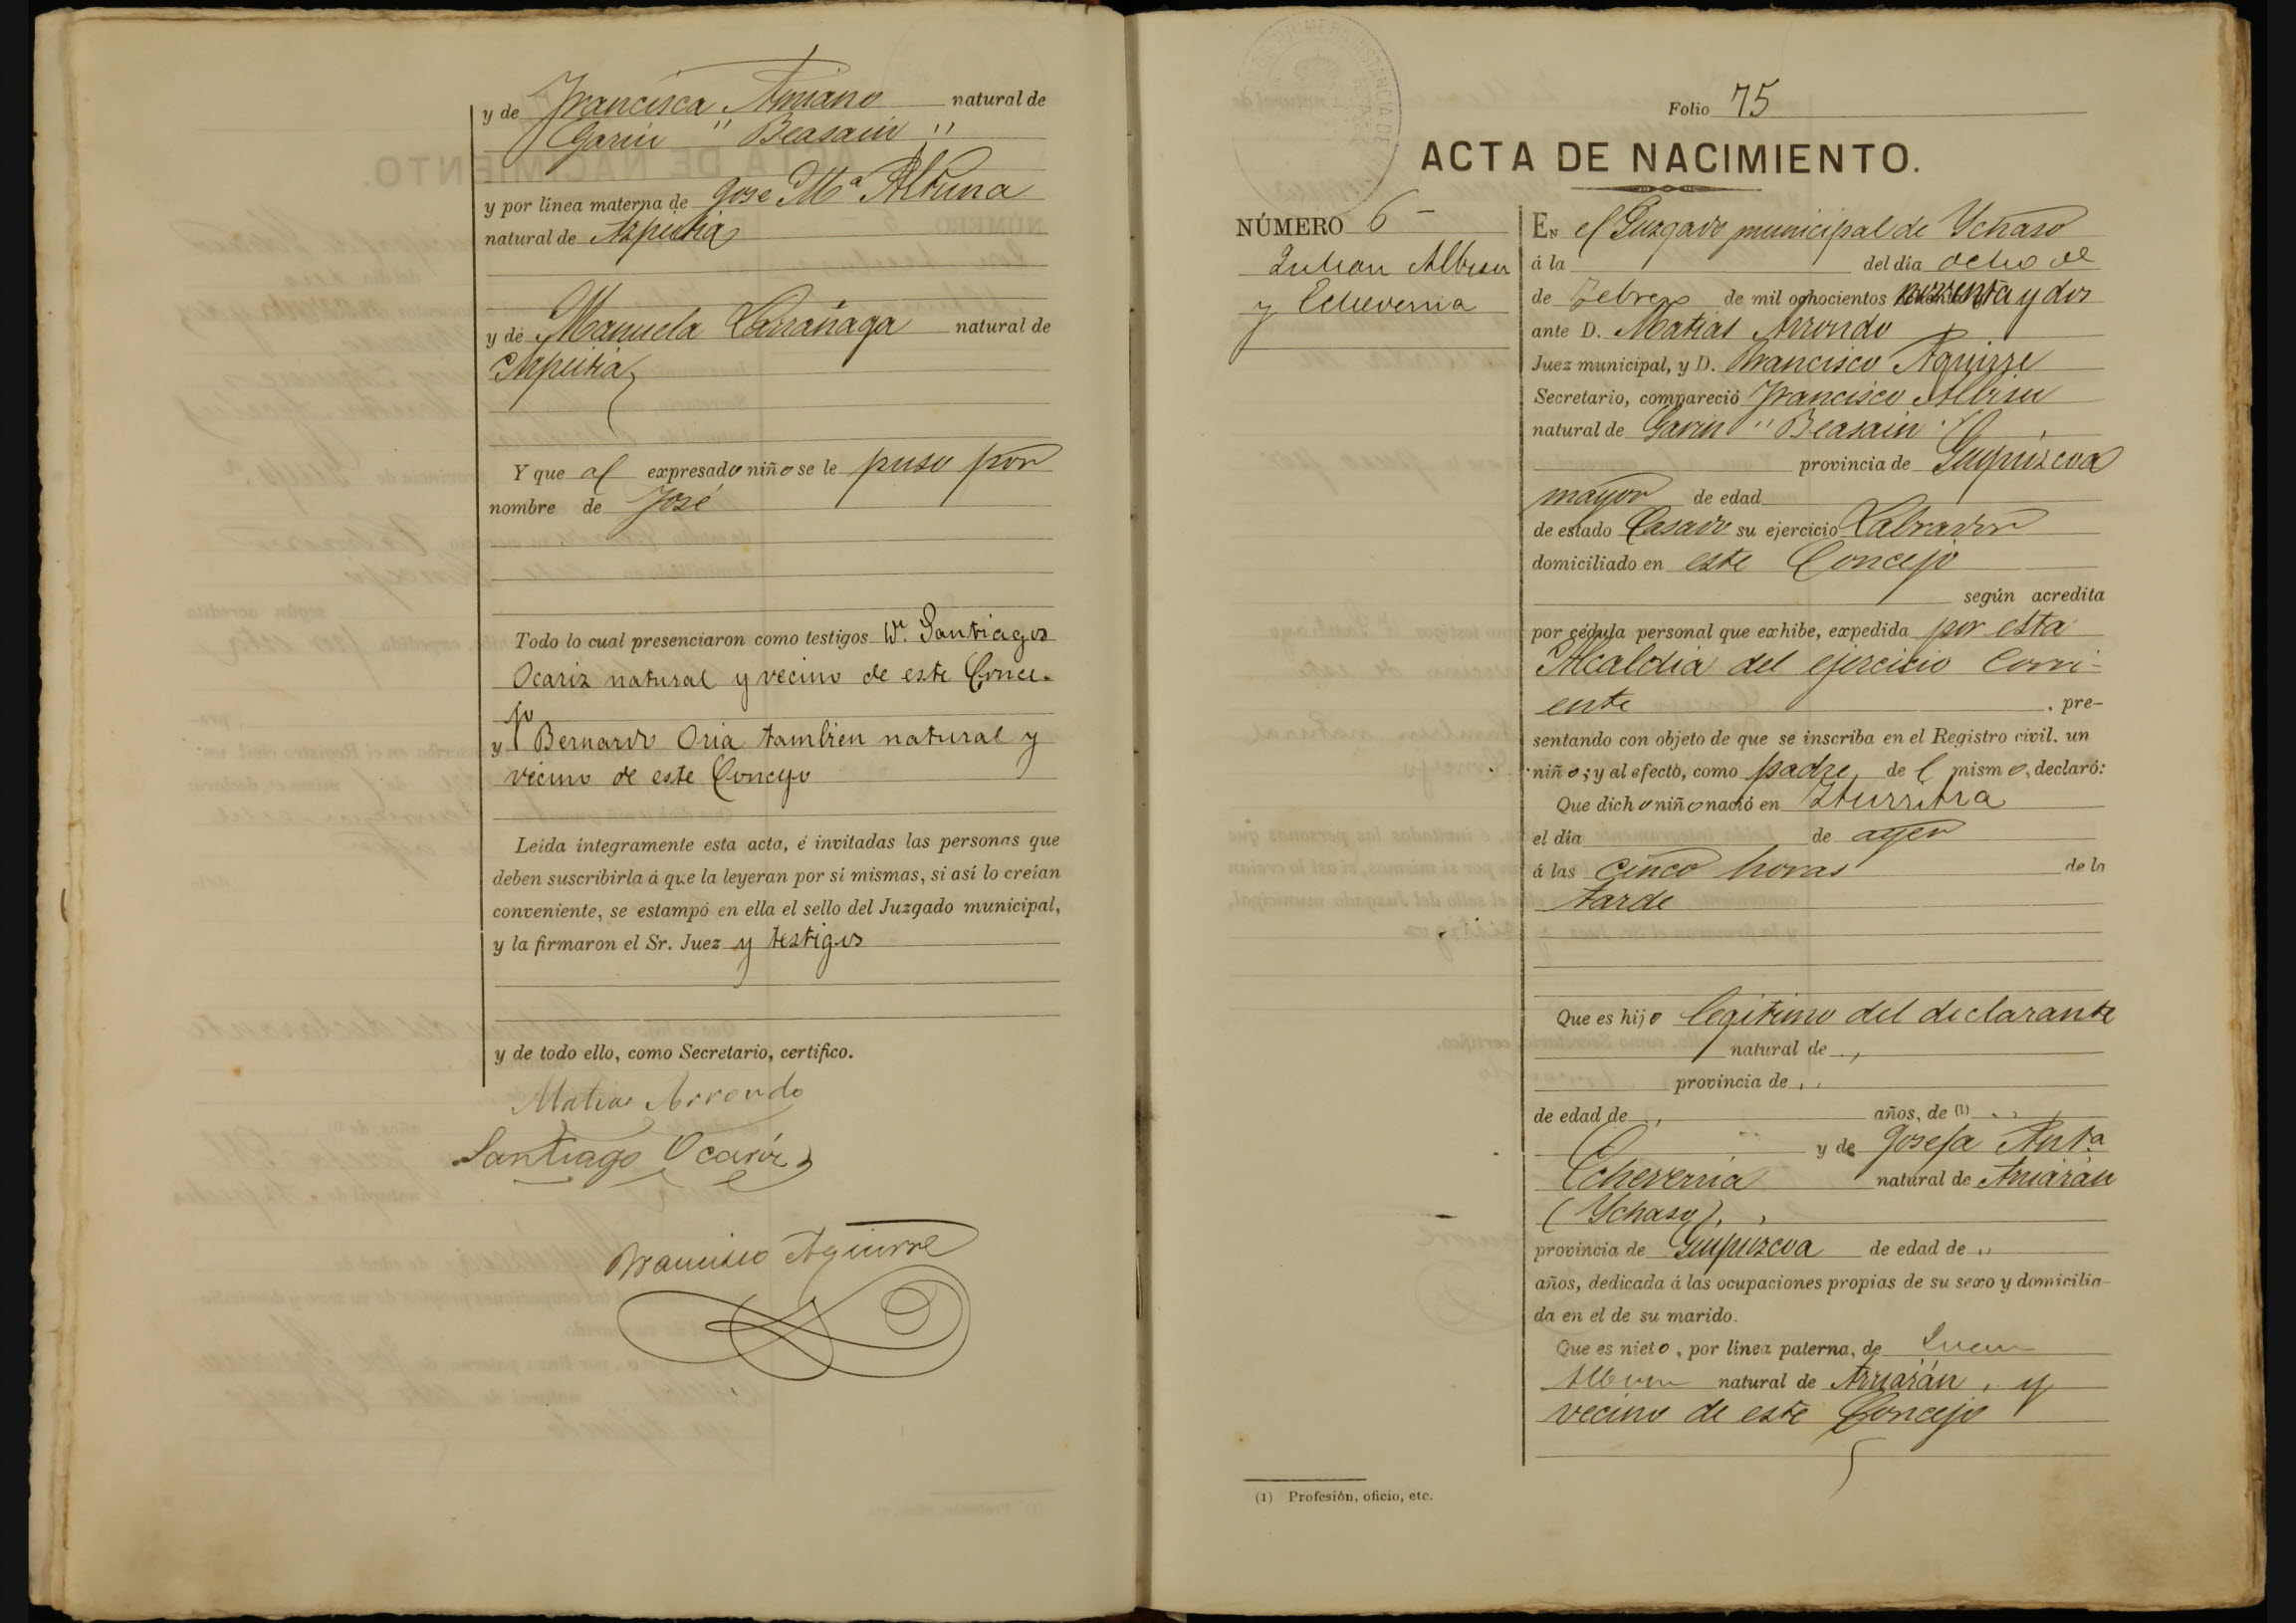 y de Francisca Amiano natural de
Garin " Beasain "
y por línea materna de Jose Mª Altuna
natural de Azpeitia
y de Manuela Larrañaga natural de
Azpeitia
Y que al expresado niño se le puso por
nombre de José
Todo lo cual presenciaron como testigos Dn. Santiago
Ocariz natural y vecino de este Conce-
jo
y Bernardo Oria tambien natural y
vecino de este Concejo
Leída íntegramente esta acta, é invitadas las personas que
deben suscribirla á que la leyeran por sí mismas, si así lo creían
conveniente, se estampó en ella el sello del Juzgado municipal,
y la firmaron el Sr. Juez y testigos
y de todo ello, como Secretario, certifico.
Matias Arrondo
Santiago Ocariz
Francisco Aguirre
Folio 75
ACTA DE NACIMIENTO.
NÚMERO 6
Julian Albisu
y Echeverria
En el Juzgado municipal de Ychaso
á la del día ocho de
de Febrero de mil ochocientos noventa y dos
ante D. Matias Arrondo
Juez municipal, y D. Francisco Aguirre
Secretario, compareció Francisco Albisu
natural de Garin " Beasain "
provincia de Guipúzcoa
mayor de edad
de estado Casado su ejercicio Labrador
domiciliado en este Concejo
según acredita
por cédula personal que exhibe, expedida por esta
Alcaldia del ejercicio corri-
ente , pre-
sentando con objeto de que se inscriba en el Registro civil, un
niño; y al efecto, como padre, del mismo, declaró:
Que dicho niño nació en Iturritza
el día de ayer
á las cinco horas de la
tarde
Que es hijo legitimo del declarante
natural de "
provincia de "
de edad de " años, de (1) "
y de Josefa Anta
Echeverria natural de Arriarán
(Ychaso) "
provincia de Guipuzcoa de edad de "
años, dedicada á las ocupaciones propias de su sexo y domicilia-
da en el de su marido.
Que es nieto, por línea paterna, de Juan
Albisu natural de Arriarán, y
vecino de este Concejo
(1) Profesión, oficio, etc.